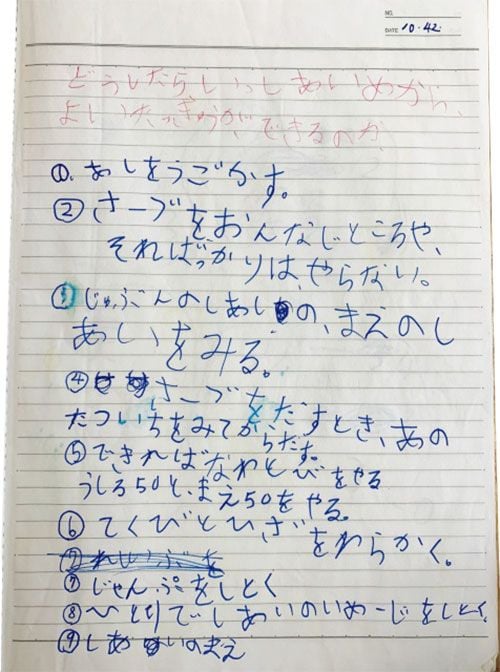 NO.
DATE 10.42
どうしたら、しっしあいいめから、
よいたっきゅうが、できるのか、
①、あしをうごかす。
②さーブをおんなじところや、
そればっかりは、やらない。
③じゅぶんのしあいの、まえのし
あいをみる。
④さーブをだすとき、あの
たついちをみてからだす。
⑤できればなわとびをやる
うしろ50と、まえ50をやる。
⑥てくびとひざをわらかく。
⑦じゃんぷをしとく
⑧ひとりでしあいのいめーじをしとく、
⑨しあいのまえ